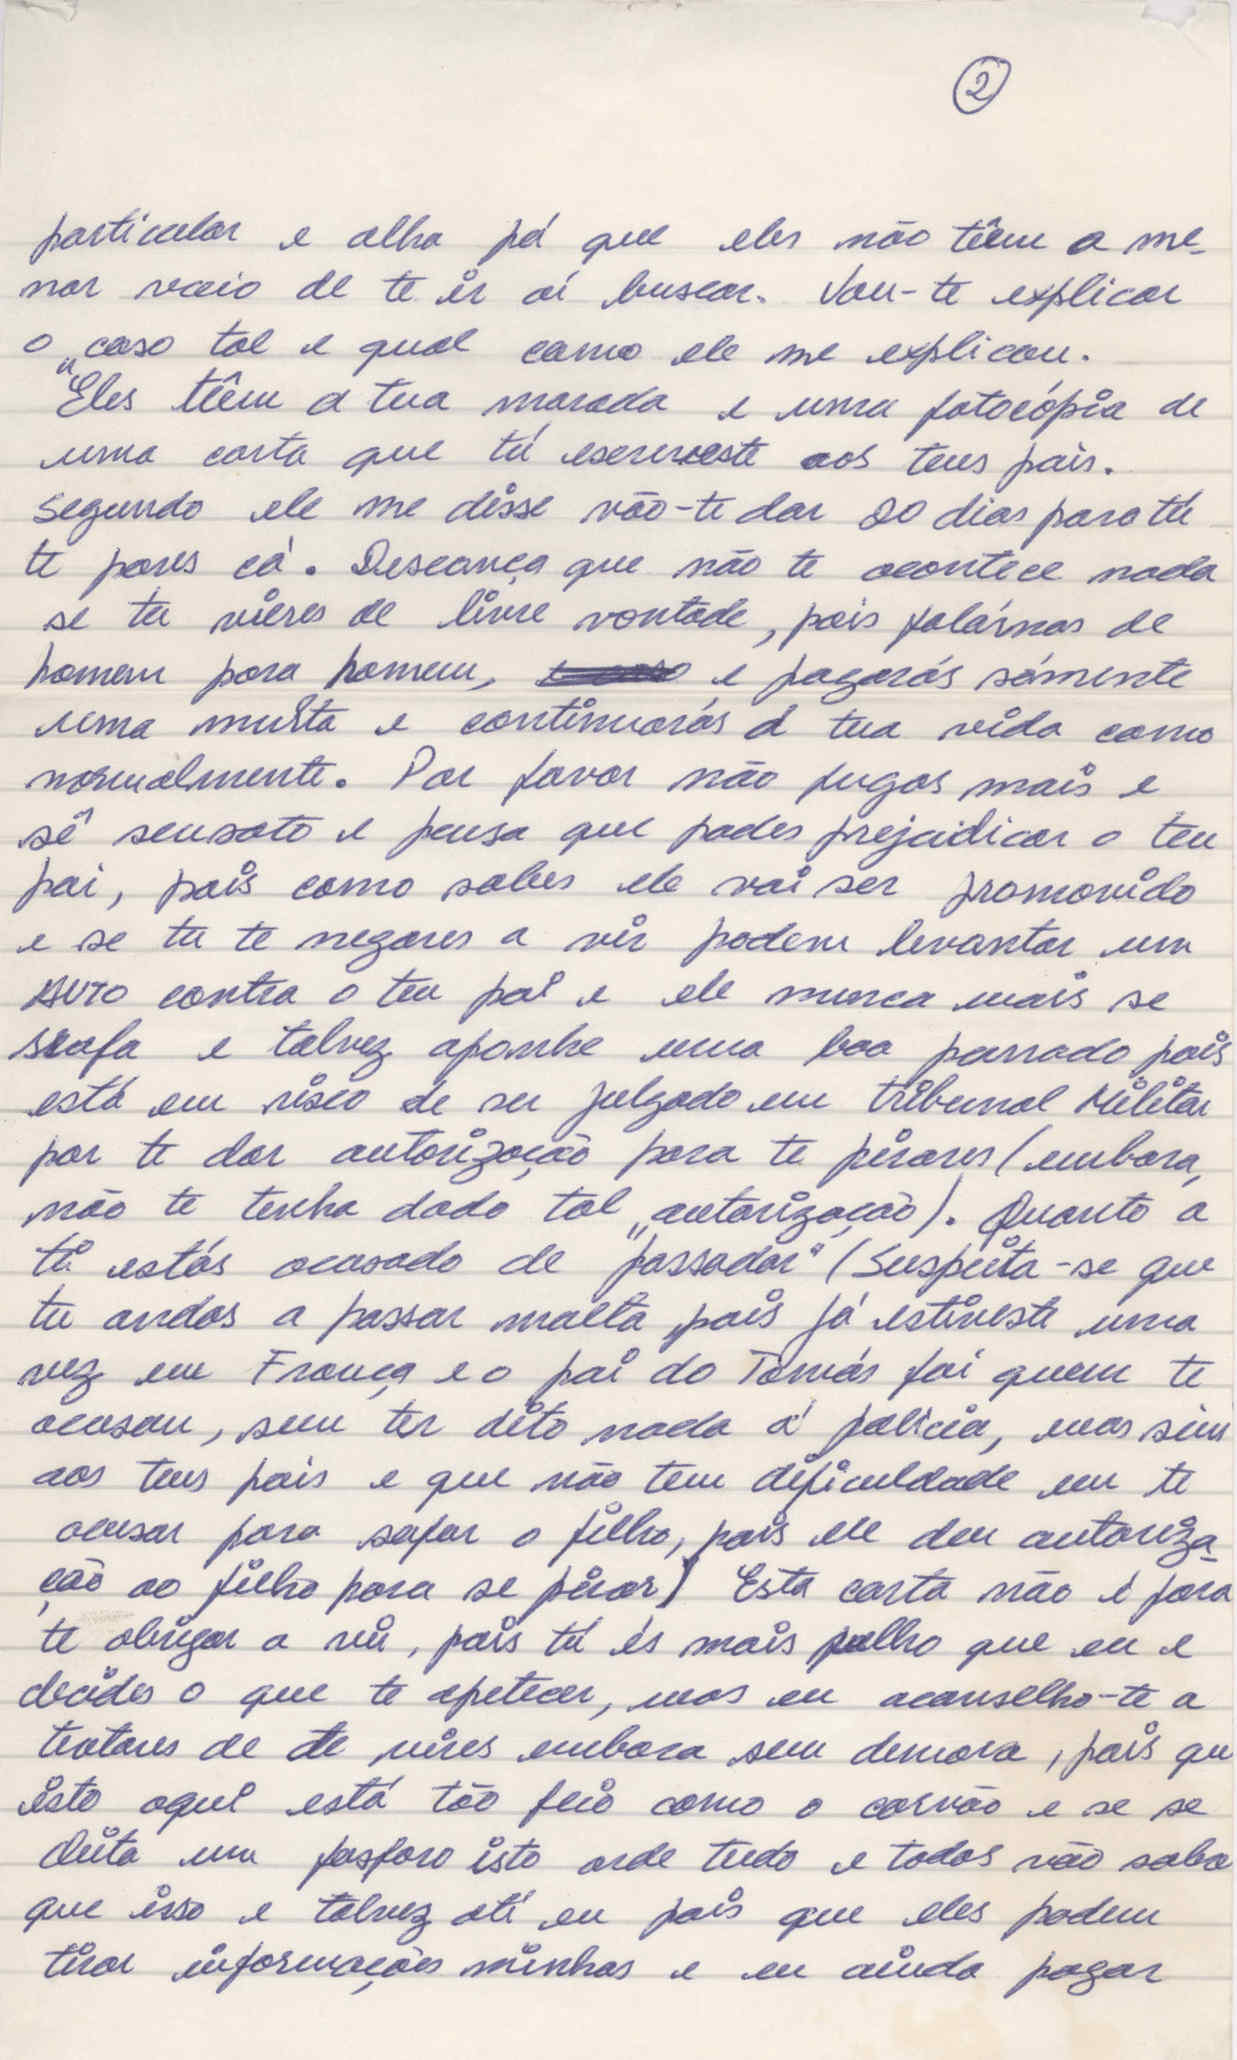 2
particular e olha pá que eles não têem a me-
nor vaio de te ir aí buscar. Vou-te explicar
o caso tal e qual como ele me explicou.
"Eles têem a tua morada e uma fotocópia de
uma carta que tú escreveste aos teus pais.
Segundo ele me disse vão-te dar 20 dias para tú
te pores cá. Descança que não te acontece nada
se tu vieres de livre vontade, pois falámos de
homem para homem, e pagarás sómente
uma multa e continuarás á tua vida como
normalmente. Por favor não fugas mais e
sê sensato e pensa que podes prejudicar o teu
pai, pois como sabes ele vai ser promovido
e se tu te negares a vir podem levantar um
AUTO contra o teu pai e ele nunca mais se
safa e talvez aponhe uma boa porrada pois
está em risco de ser julgado em tribunal Militar
por te dar autorização para te pirares (embora,
não te tenha dado tal "autorização). Quanto a
ti estás acusado de "passador" (Suspeita-se que
tu andas a passar malta pois já estiveste uma
vez em França e o pai do Tomás foi quem te
acusou, sem ter dito nada á policia, mas sim
aos teus pais e que não tem dificuldade em te
acusar para safar o filho, pois ele deu autoriza-
ção ao filho para se pirar) Esta carta não é para
te obrigar a vir, pois tú és mais velho que eu e
decides o que te apetecer, mas eu aconselho-te a
tratares de te vires embora sem demora, pois que
isto aqui está tão feio como o carvão e se se
deita um fosforo isto arde tudo e todos vão saber
que isso e talvez até eu pois que eles podem
tirar informações minhas e eu ainda pagar